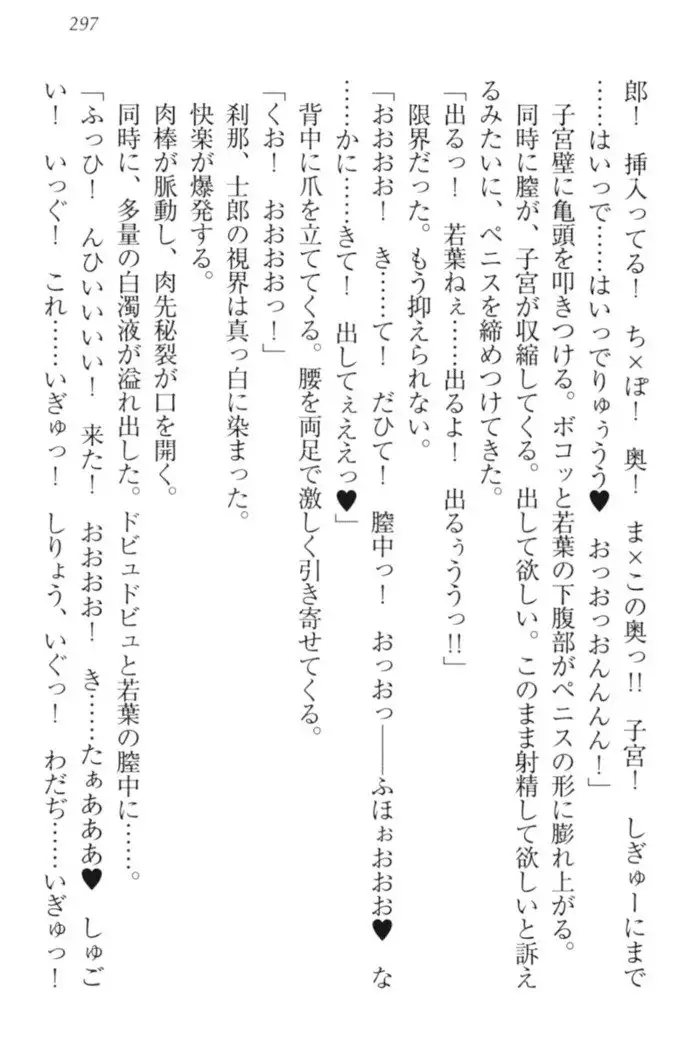 297
郎！　挿入ってる！　ち×ぽ！　奥！　ま×この奥っ!!　子宮！　しぎゅーにまで
……はいっで……はいっでりゅぅうう♥　おっおっおんんんん！」
子宮壁に亀頭を叩きつける。ボコッと若葉の下腹部がペニスの形に膨れ上がる。
同時に膣が、子宮が収縮してくる。出して欲しい。このまま射精して欲しいと訴え
るみたいに、ペニスを締めつけてきた。
「出るっ！　若葉ねぇ……出るよ！　出るぅううっ!!」
限界だった。もう抑えられない。
「おおおお！　き……て！　だひて！　膣中っ！　おっおっ――ふほぉおおお♥　な
……かに……きて！　出してぇええっ♥」
背中に爪を立ててくる。腰を両足で激しく引き寄せてくる。
「くお！　おおおおっ！」
刹那、士郎の視界は真っ白に染まった。
快楽が爆発する。
肉棒が脈動し、肉先秘裂が口を開く。
同時に、多量の白濁液が溢れ出した。ドビュドビュと若葉の膣中に……。
「ふっひ！　んひいいいい！　来た！　おおおお！　き……たぁあああ♥　しゅご
い！　いっぐ！　これ……いぎゅっ！　しりょう、いぐっ！　わだぢ……いぎゅっ！